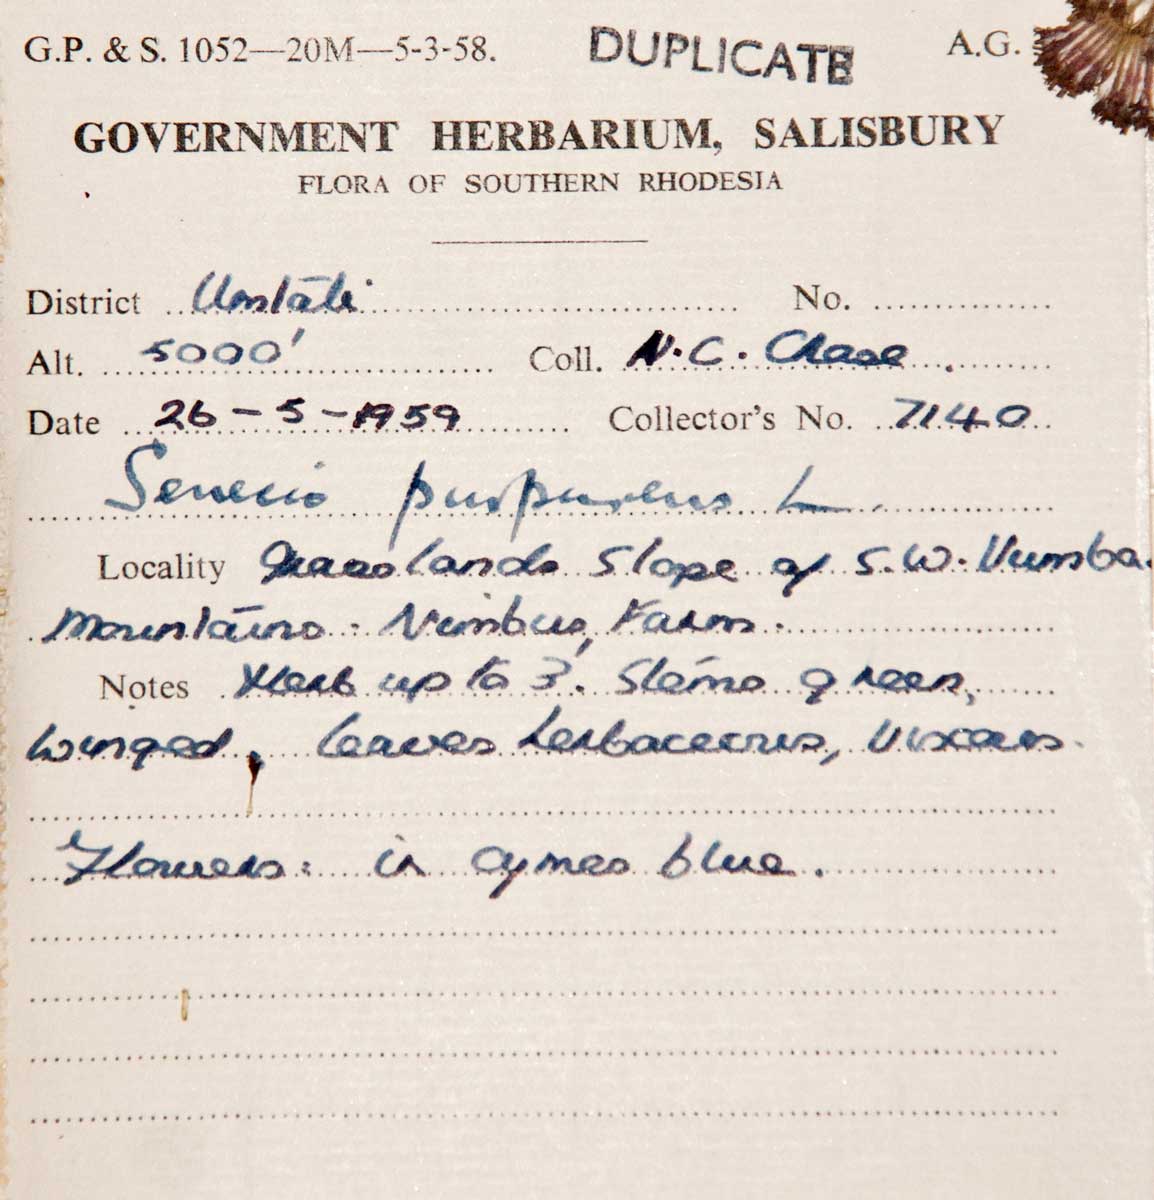 G.P. & S. 1052—20M—5-3-58. DUPLICATE A.G.
GOVERNMENT HERBARIUM, SALISBURY
FLORA OF SOUTHERN RHODESIA
District Umtali No.
Alt. 5000' Coll. N.C. Chase
Date 26-5-1959 Collector's No. 7140
Senecio purpureus L.
Locality Grasslands slope of S.W. Vumba
Mountains. Nimbus Farm.
Notes Herb up to 3'. Stems green,
winged, leaves herbaceous, viscous.
Flowers: in cymes blue.